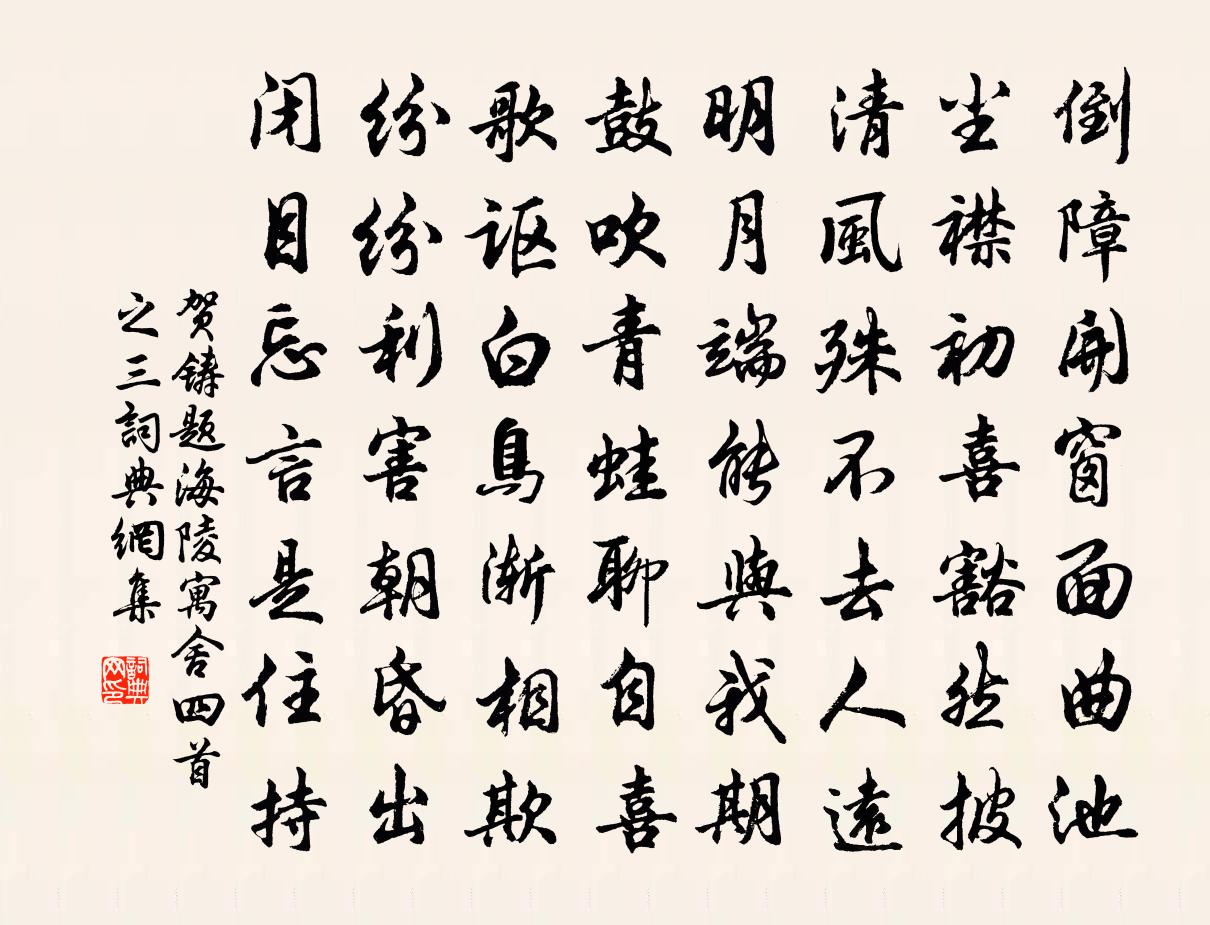 倒障開窗面曲池
尘襟初喜豁然披
清風殊不去人遠
明月端能與我期
鼓吹青蛙聊自喜
歌讴白鳥渐相欺
纷纷利害朝昏出
闭目忘言是住持
贺鑄题海陵寓舍四首
之三詞典網集
詞典网印